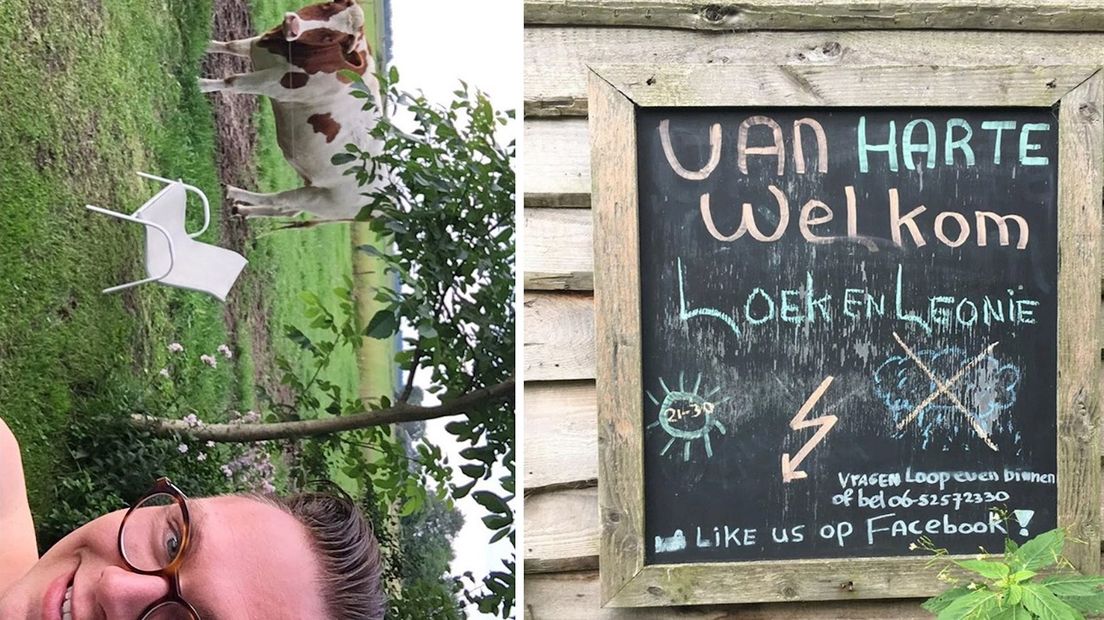 VAN HARTE
Welkom
LOEK EN LEONIE
21-30
VRAGEN Loop even binnen
of bel 06-52572330
Like us op Facebook!